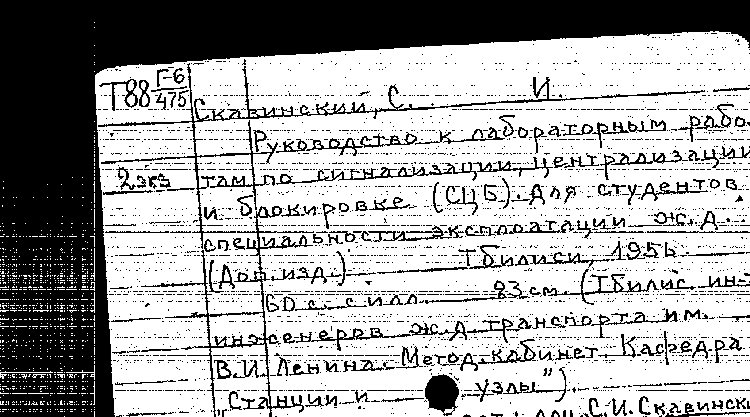 Т88 Г-6/475
Скавинский, С. И.
Руководство к лабораторным рабо-
2 экз там по сигнализации, централизации
и блокировке (СЦБ). Для студентов
специальности эксплоатации ж.д.
(Доп. изд.) Тбилиси, 1956.
60 с. с илл. 23 см. (Тбилис. ин-
инженеров ж.д. транспорта им.
В.И. Ленина. Метод. кабинет. Кафедра
"Станции и узлы").
С.И. Скавинск